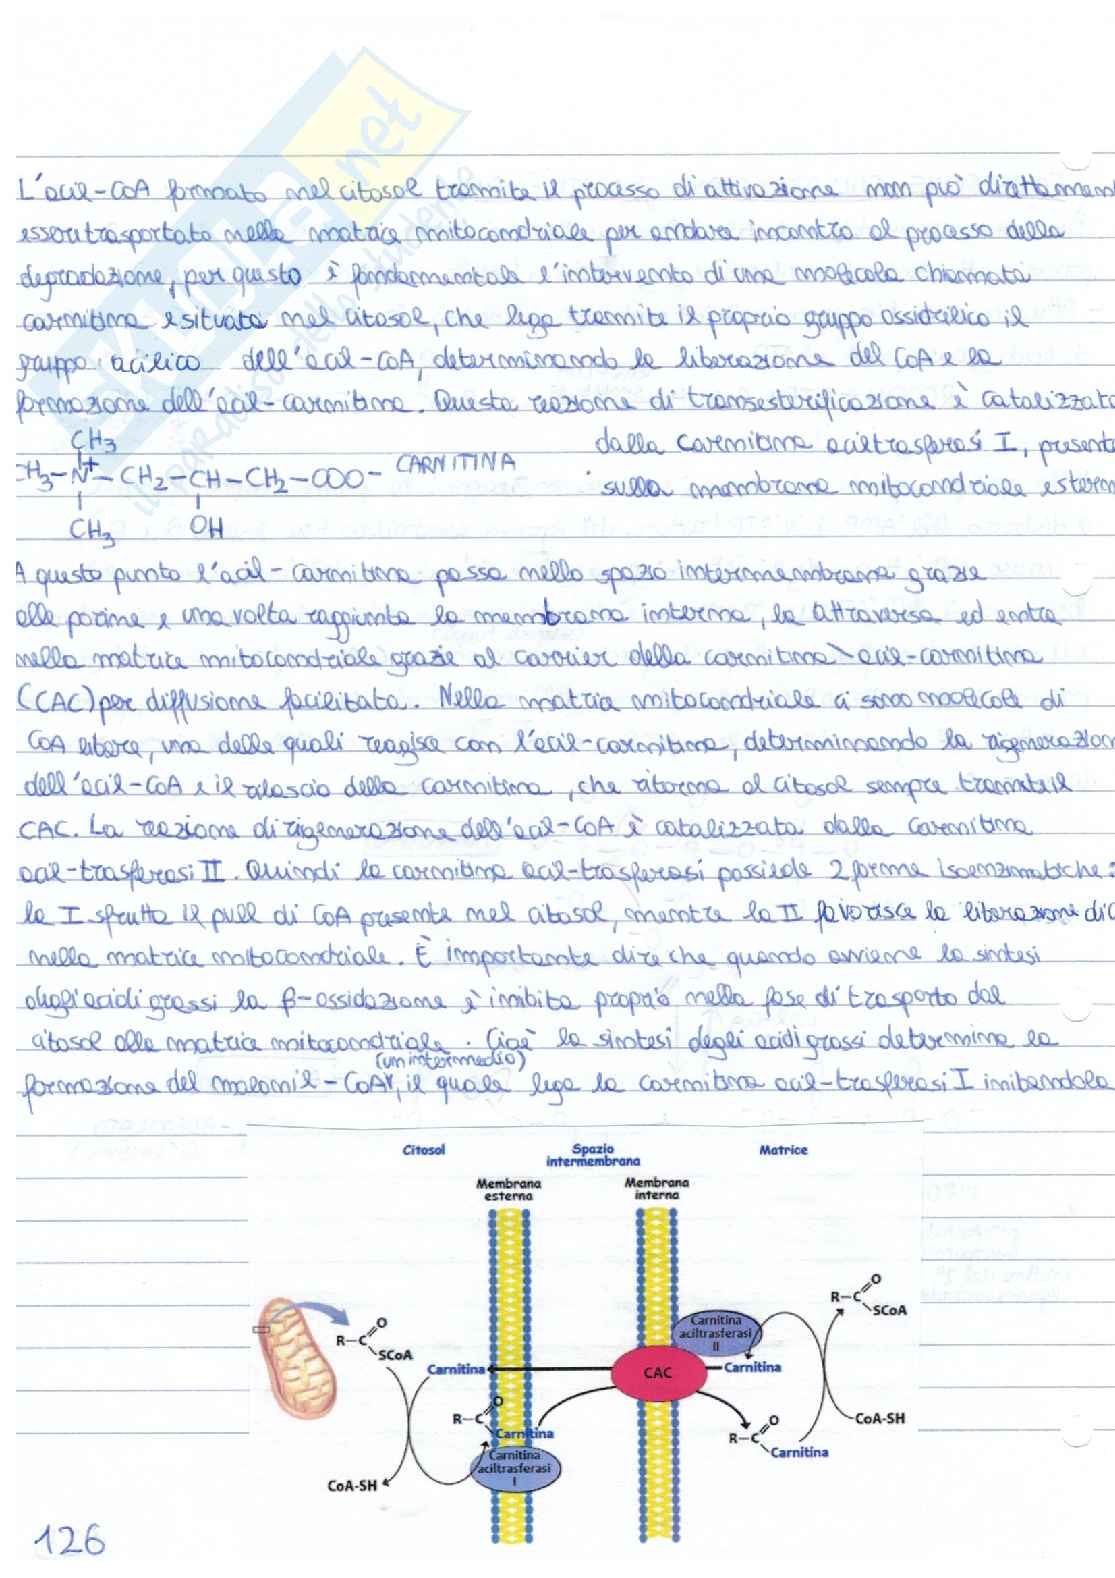 L'acil-CoA formato nel citosol tramite il processo di attivazione non può direttament
essere trasportato nella matrice mitocondriale per andare incontro al processo della
degradazione, per questo è fondamentale l'intervento di una molecola chiamata
carnitina e situata nel citosol, che lega tramite il proprio gruppo ossidrilico il
gruppo acilico dell'acil-CoA, determinando la liberazione del CoA e la
formazione dell'acil-carnitina. Questa reazione di transesterificazione è catalizzata
dalla carnitina aciltrasferasi I, presente
sulla membrana mitocondriale estern
CH3
CH3-N+-CH2-CH-CH2-COO- CARNITINA
CH3 OH
A questo punto l'acil-carnitina passa nello spazio intermembrana grazie
alle porine e una volta raggiunta la membrana interna, la attraversa ed entra
nella matrice mitocondriale grazie al carrier della carnitina-acil-carnitina
(CAC) per diffusione facilitata. Nella matrice mitocondriale ci sono molecole di
CoA libere, una delle quali reagisce con l'acil-carnitina, determinando la rigenerazion
dell'acil-CoA e il rilascio della carnitina, che ritorna al citosol sempre tramite il
CAC. La reazione di rigenerazione dell'acil-CoA è catalizzata dalla carnitina
acil-trasferasi II. Quindi la carnitina acil-trasferasi possiede 2 forme isoenzimatiche:
la I sfrutta il pull di CoA presente nel citosol, mentre la II favorisce la liberazione di C
nella matrice mitocondriale. È importante dire che quando avviene la sintesi
degli acidi grassi la β-ossidazione è inibita proprio nella fase di trasporto dal
citosol alla matrice mitocondriale. Cioè la sintesi degli acidi grassi determina la
(un intermedio)
formazione del malonil-CoA, il quale lega la carnitina acil-trasferasi I inibendola
Citosol Spazio Matrice
intermembrana
Membrana Membrana
esterna interna
R-C O
SCoA
Carnitina
aciltrasferasi
II
R-C O
SCoA
Carnitina CAC Carnitina
R-C O
Carnitina
CoA-SH
R-C O
Carnitina
Carnitina
aciltrasferasi
I
CoA-SH
126
SKUOLA.net
il paradiso dello studente